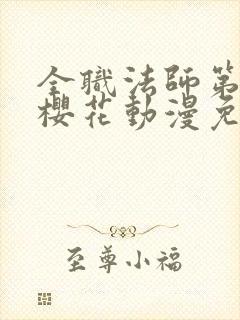 全職法師第
櫻花動漫免
至尊小福